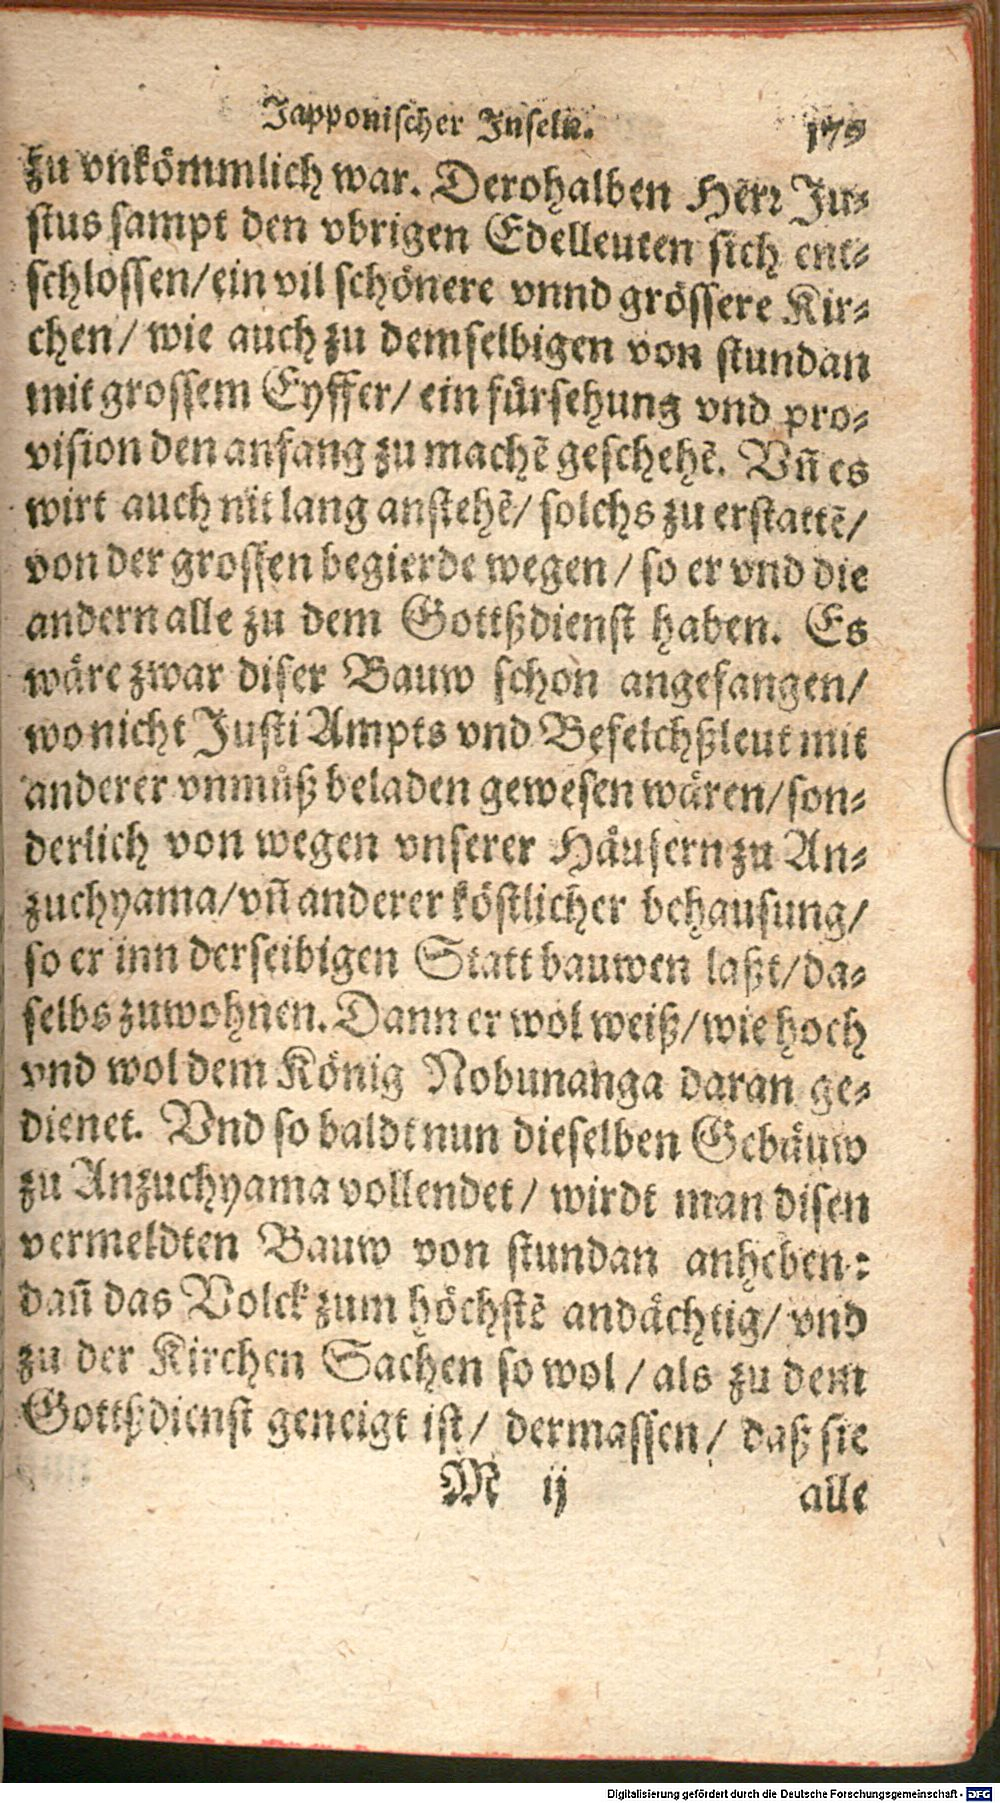 Japponischer Inseln. 179
zu vnkömmlich war. Derohalben Herr Ju⸗
stus sampt den vbrigen Edelleuten sich ent⸗
schlossen/ ein vil schönere vnnd grössere Kir⸗
chen/ wie auch zu demselbigen von stundan
mit grossem Eyffer/ ein fürsehung vnd pro⸗
vision den anfang zu machẽ geschehẽ. Vñ es
wirt auch nit lang anstehẽ/ solchs zu erstattẽ/
von der grossen begierde wegen/ so er vnd die
andern alle zu dem Gottßdienst haben. Es
wäre zwar diser Bauw schon angefangen/
wo nicht Justi Ampts vnd Befelchßleut mit
anderer vnmůß beladen gewesen wären/ son⸗
derlich von wegen vnserer Häusern zu An⸗
zuchyama/ vñ anderer köstlicher behausung/
so er inn derselbigen Statt bauwen laßt/ da⸗
selbs zuwohnen. Dann er wol weiß/ wie hoch
vnd wol dem König Nobunanga daran ge⸗
dienet. Vnd so baldt nun dieselben Gebäuw
zu Anzuchyama vollendet/ wirdt man disen
vermeldten Bauw von stundan anheben:
dañ das Volck zum höchstẽ andächtig/ vnd
zu der Kirchen Sachen so wol/ als zu dem
Gottßdienst geneigt ist/ dermassen/ daß sie
M ij alle
Digitalisierung gefördert durch die Deutsche Forschungsgemeinschaft - DFG